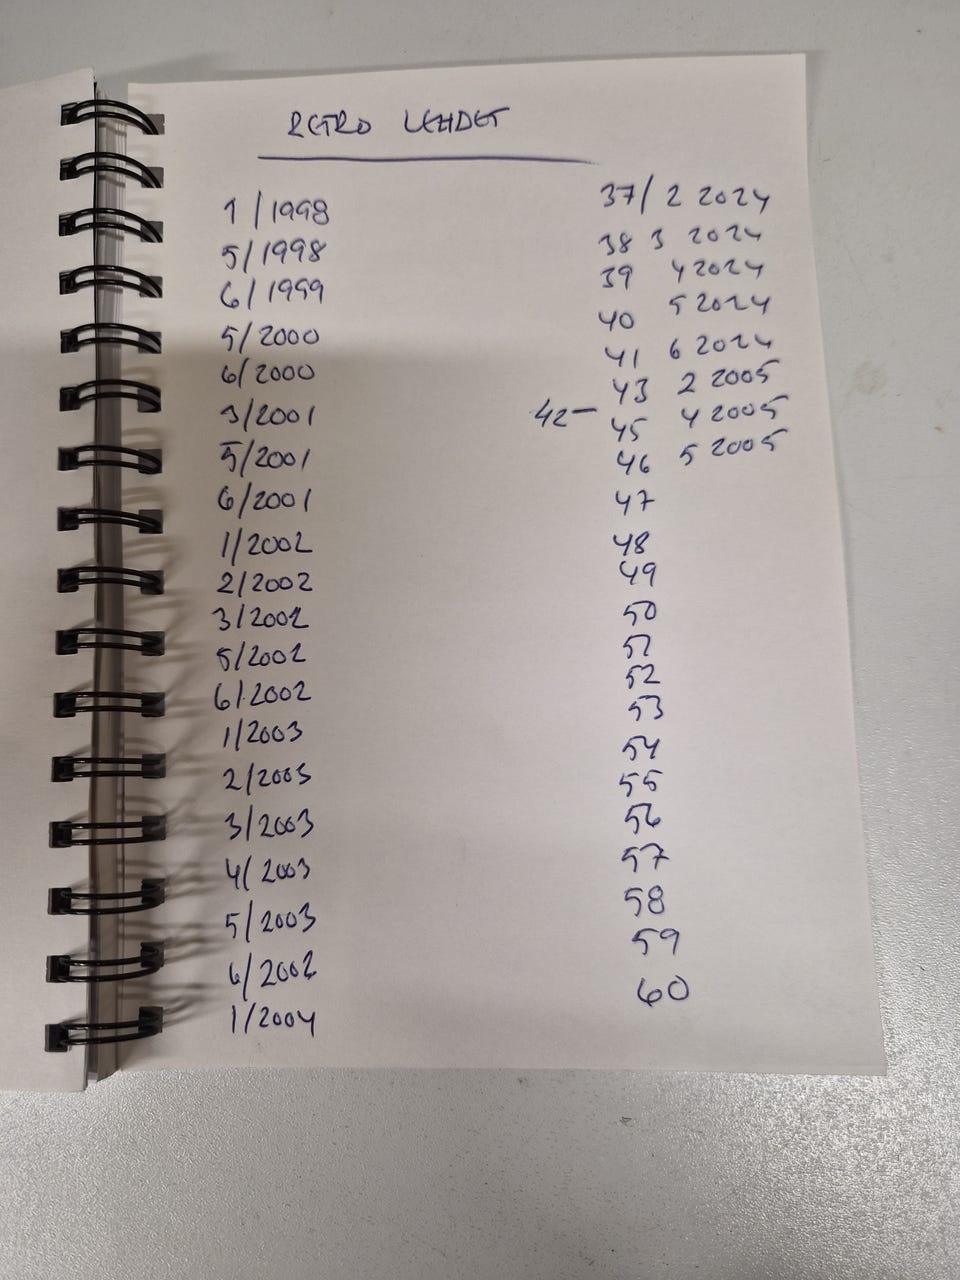 RETRO LEHDET
1/1998
5/1998
6/1999
5/2000
6/2000
3/2001
5/2001
6/2001
1/2002
2/2002
3/2002
5/2002
6/2002
1/2003
2/2003
3/2003
4/2003
5/2003
6/2002
1/2004
37/2 2024
38 3 2024
39 4 2024
40 5 2024
41 6 2024
43 2 2005
42–
45 4 2005
46 5 2005
47
48
49
50
51
52
53
54
55
56
57
58
59
60